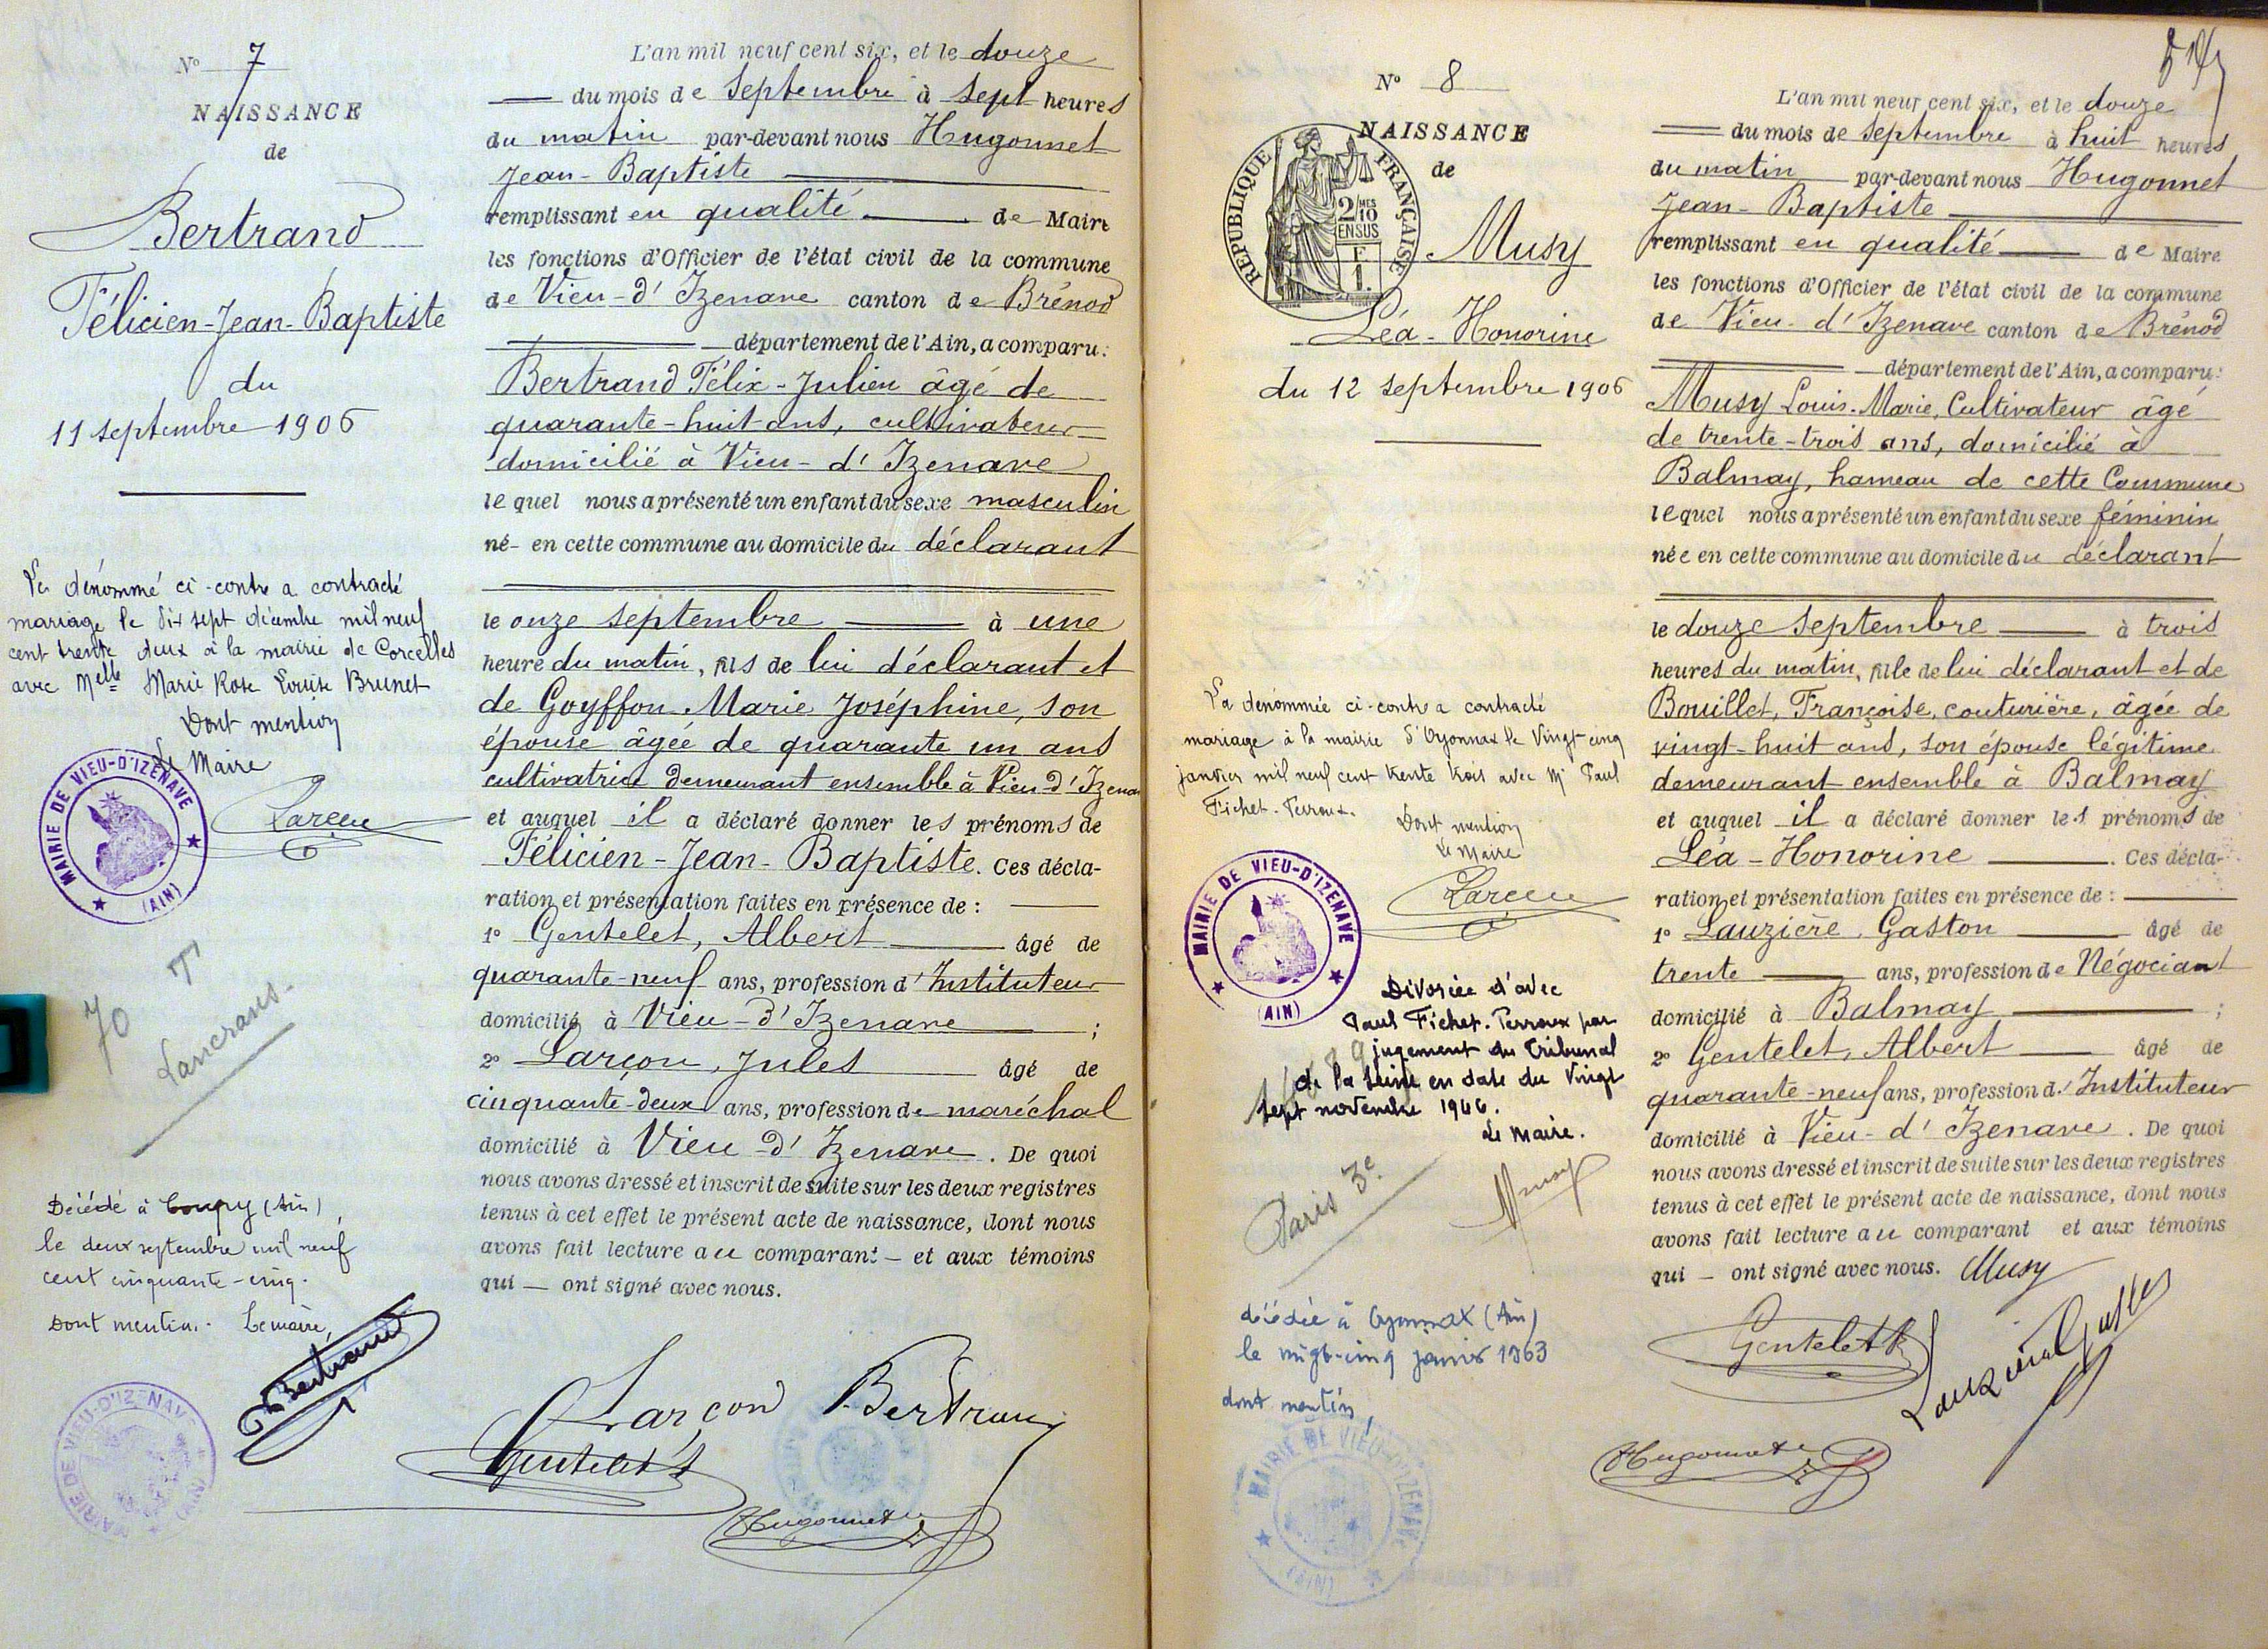 N° 7
NAISSANCE
de
Bertrand
Félicien-Jean-Baptiste
du
11 septembre 1906
Le dénommé ci-contre a contracté
mariage le dix sept décembre mil neuf
cent trente deux à la mairie de Corcelles
avec Melle Marie Rose Louise Brunet
Dont mention
Le Maire
MAIRIE DE VIEU-D'IZENAVE
(AIN)
70 T
Lancrans.
Décédé à Coupy (Ain)
le deux septembre mil neuf
cent cinquante-cinq.
Dont mention. Le maire,
Bertrand
MAIRIE DE VIEU-D'IZENAVE
(AIN)
L'an mil neuf cent six, et le douze
du mois de Septembre à sept heures
du matin par-devant nous Hugonnet
Jean-Baptiste
remplissant en qualité de Maire
les fonctions d'Officier de l'état civil de la commune
de Vieu-d'Izenave canton de Brénod
département de l'Ain, a comparu:
Bertrand Félix-Julien âgé de
quarante-huit ans, cultivateur
domicilié à Vieu-d'Izenave
lequel nous a présenté un enfant du sexe masculin
né- en cette commune au domicile du déclarant
le onze septembre à une
heure du matin, fils de lui déclarant et
de Goyffon Marie Joséphine, son
épouse âgée de quarante un ans
cultivatrice demeurant ensemble à Vieu-d'Izenave
et auquel il a déclaré donner les prénoms de
Félicien-Jean-Baptiste. Ces décla-
ration et présentation faites en présence de :
1° Gentelet, Albert âgé de
quarante-neuf ans, profession d'Instituteur
domicilié à Vieu-d'Izenave ;
2° Larçon, Jules âgé de
cinquante-deux ans, profession de maréchal
domicilié à Vieu-d'Izenave. De quoi
nous avons dressé et inscrit de suite sur les deux registres
tenus à cet effet le présent acte de naissance, dont nous
avons fait lecture au comparant - et aux témoins
qui — ont signé avec nous.
Larçon Bertrand
Gentelet
Hugonnet
N° 8
NAISSANCE
de
RÉPUBLIQUE FRANÇAISE
2/10 MES
EN SUS
F
1.
Musy
Léa-Honorine
du 12 septembre 1906
La dénommée ci-contre a contracté
mariage à la mairie d'Oyonnax le vingt-cinq
janvier mil neuf cent trente trois avec Mr Paul
Fichet-Perroux.
Dont mention
Le Maire
MAIRIE DE VIEU-D'IZENAVE
(AIN)
Divorcée d'avec
Paul Fichet-Perroux par
jugement du Tribunal
de la Seine en date du vingt
sept novembre 1946.
Le Maire.
Musy
Paris 3e
décédée à Oyonnax (Ain)
le vingt-cinq janvier 1963
dont mention,
MAIRIE DE VIEU-D'IZENAVE
(AIN)
L'an mil neuf cent six, et le douze
du mois de septembre à huit heures
du matin par-devant nous Hugonnet
Jean-Baptiste
remplissant en qualité de Maire
les fonctions d'Officier de l'état civil de la commune
de Vieu-d'Izenave canton de Brénod
département de l'Ain, a comparu:
Musy Louis-Marie, Cultivateur âgé
de trente-trois ans, domicilié à
Balmay, hameau de cette Commune
lequel nous a présenté un enfant du sexe féminin
née en cette commune au domicile du déclarant
le douze septembre à trois
heures du matin, fille de lui déclarant et de
Bouillet, Françoise, couturière, âgée de
vingt-huit ans, son épouse légitime
demeurant ensemble à Balmay
et auquel il a déclaré donner les prénoms de
Léa-Honorine. Ces décla-
ration et présentation faites en présence de :
1° Lauzière, Gaston âgé de
trente ans, profession de Négociant
domicilié à Balmay ;
2° Gentelet, Albert âgé de
quarante-neuf ans, profession d'Instituteur
domicilié à Vieu-d'Izenave. De quoi
nous avons dressé et inscrit de suite sur les deux registres
tenus à cet effet le présent acte de naissance, dont nous
avons fait lecture au comparant et aux témoins
qui — ont signé avec nous. Musy
Gentelet
Lauzière Gaston
Hugonnet